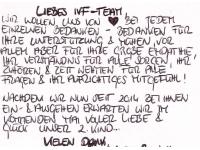 LIEBES IVF-TEAM,
WIR WOLLEN UNS VON ♥ BEI JEDEM
EINZELNEN BEDANKEN - BEDANKEN FÜR
IHRE UNTERSTÜTZUNG & MÜHEN, VOR
ALLEM ABER FÜR IHRE GROßE EMPATHIE,
IHR VERSTÄNDNIS FÜR ALLE SORGEN, IHR
ZUHÖREN & ZEIT NEHMEN FÜR ALLE
FRAGEN & IHR AUFRICHTIGES MITGEFÜHL!
NACHDEM WIR NUN SEIT 2014 BEI IHNEN
EIN- & AUSGEHEN ERWARTEN WIR IM
KOMMENDEN MAI VOLLER LIEBE &
GLÜCK UNSER 2. KIND...
VIELEN DANK,